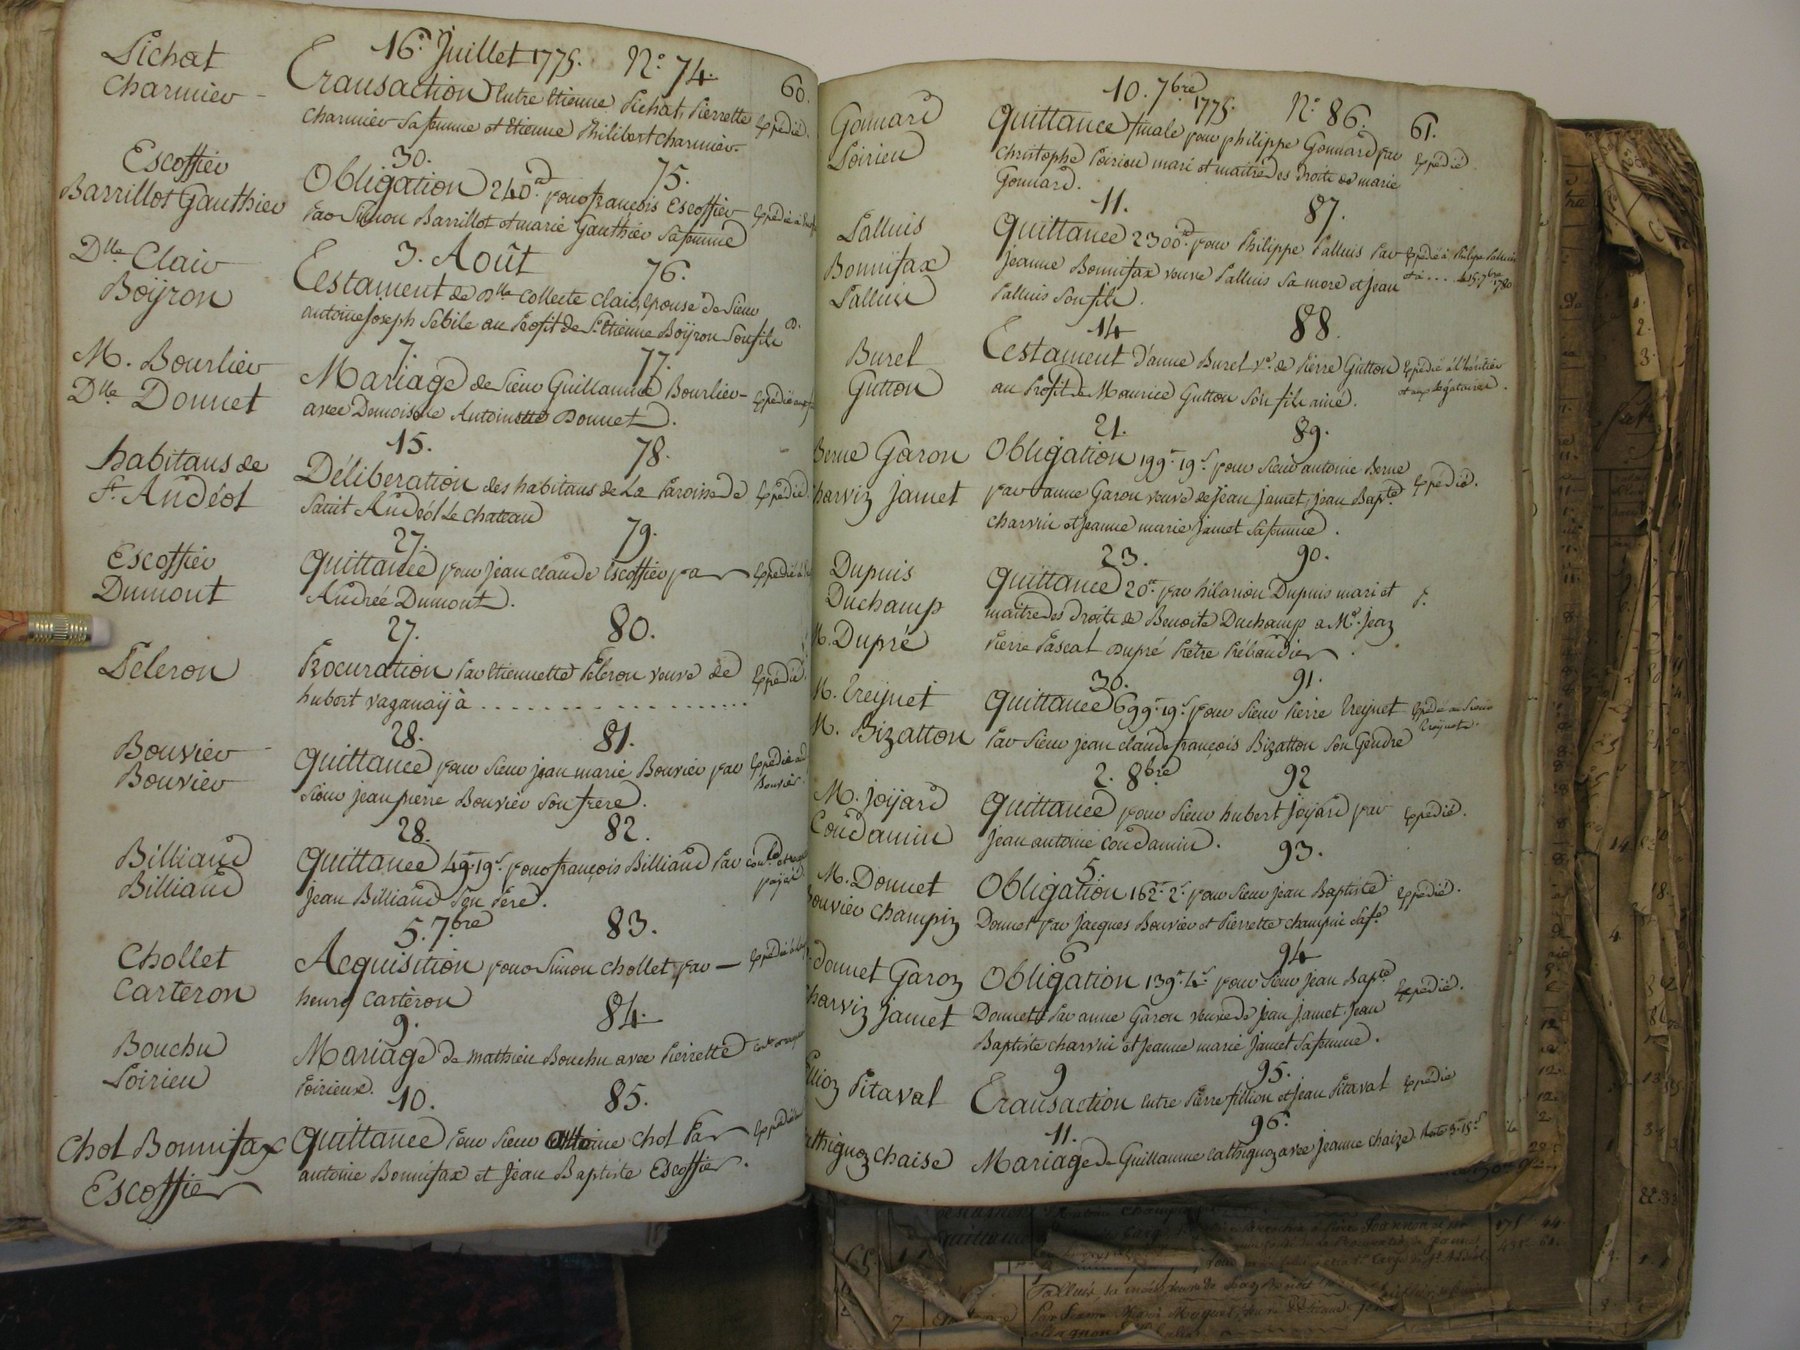 60.
16. Juillet 1775. N.° 74.
Pichat
Charmier
Transaction Entre Etienne Pichat, Pierrette
Charmier sa femme et Etienne Philibert Charmier.
Expédié.
30. 75.
Escoffier
Barrillot Gauthier
Obligation 240.# pour françois Escoffier
Par Simon Barrillot et marie Gauthier sa femme
Expédié à
3. Août 76.
Dlle Clair
Boÿron
Testament de Dlle Collecte Clair, Epouse de Sieur
antoine Joseph Sebile au Profit de Sr Etienne Boÿron son fils
7. 77.
M. Bourlier
Dlle Donnet
Mariage de Sieur Guillaume Bourlier
avec Demoiselle Antoinette Donnet.
Expédié
15. 78.
habitans de
St. Andéol
Délibération des habitans de La Paroisse de
Saint Andéol Le Chateau
Expédié.
27. 79.
Escoffier
Dumont
Quittance pour Jean claude Escoffier par
Andrée Dumont.
Expédié à
27. 80.
Peleron
Procuration Par Etiennette Peleron veuve de
hubert vaganaÿ à
Expédié.
28. 81.
Bouvier
Bouvier
Quittance pour Sieur jean marie Bouvier par
Sieur Jean pierre Bouvier son frere.
Expédié au
Bouvier
28. 82.
Billiaud
Billiaud
Quittance 49.# 19.s pour françois Billiaud Par
Jean Billiaud Son Pere.
payé
5. 7.bre 83.
Chollet
Carteron
Acquisition pour Simon Chollet, par
henry Carteron
Expédié
9. 84.
Bouchu
Poirieu
Mariage de Mathieu Bouchu avec Pierrette
Poirieux.
10. 85.
Chol Bonnifax
Escoffier
Quittance Pour Sieur Antoine Chol Par
antoine Bonnifax et Jean Baptiste Escoffier.
Expédié
61.
10. 7.bre 1775. N.° 86.
Gonnard
Poirieu
Quittance finale pour philippe Gonnard par
Christophe Poirieu mari et maitre des Droits de marie
Gonnard.
Expédié.
11. 87.
Palluis
Bonnifax
Palluis
Quittance 2300.# pour Philippe Palluis Par
Jeanne Bonnifax veuve Palluis Sa mere et Jean
Palluis son fils.
Expédié à Philippe Palluis
et à . . . . le 15 7bre 1780
14 88.
Burel
Gutton
Testament d'anne Burel Ve. de Pierre Gutton
au Profit de Maurice Gutton son fils ainé.
Expédié à l'héritier
et aux légataires.
21. 89.
Berne Garon
Charvin Jamet
Obligation 199.# 19.s pour Sieur antoine Berne
par anne Garon veuve de Jean Jamet, Jean Bapte
Charvin et Jeanne marie Jamet sa femme.
Expédié.
23. 90.
Dupuis
Duchamp
M. Dupré
Quittance 20.# par hilarion Dupuis mari et
maitre des Droits de Benoite Duchamp a Me. Jean
Pierre Pascal Dupré Prêtre Prébandier.
30. 91.
M. Treynet
M. Bizatton
Quittance 699.# 19.s pour Sieur Pierre Treynet
Par Sieur jean claude françois Bizatton son Gendre
Expédié au Sieur
Treynet.
2. 8bre 92
M. Joÿard
Coudamin
Quittance pour Sieur hubert Joÿard par
Jean antoine Coudamin.
Expédié.
5. 93.
M. Donnet
Bouvier Champin
Obligation 162.# 2.s pour Sieur Jean Baptiste
Donnet par Jacques Bouvier et Pierrette champin sa fe.
Expédié.
6 94
Donnet Garon
Charvin Jamet
Obligation 139.# 4.s pour Sieur Jean Bapte
Donnet Par anne Garon veuve de Jean Jamet Jean
Baptiste charvin et Jeanne marie Jamet sa femme.
Expédié.
9 95.
Fillion Pitaval
Transaction Entre Pierre fillion et Jean Pitaval
Expédié
11. 96.
Cathignon chaise
Mariage de Guillaume Cathignon avec Jeanne chaize.